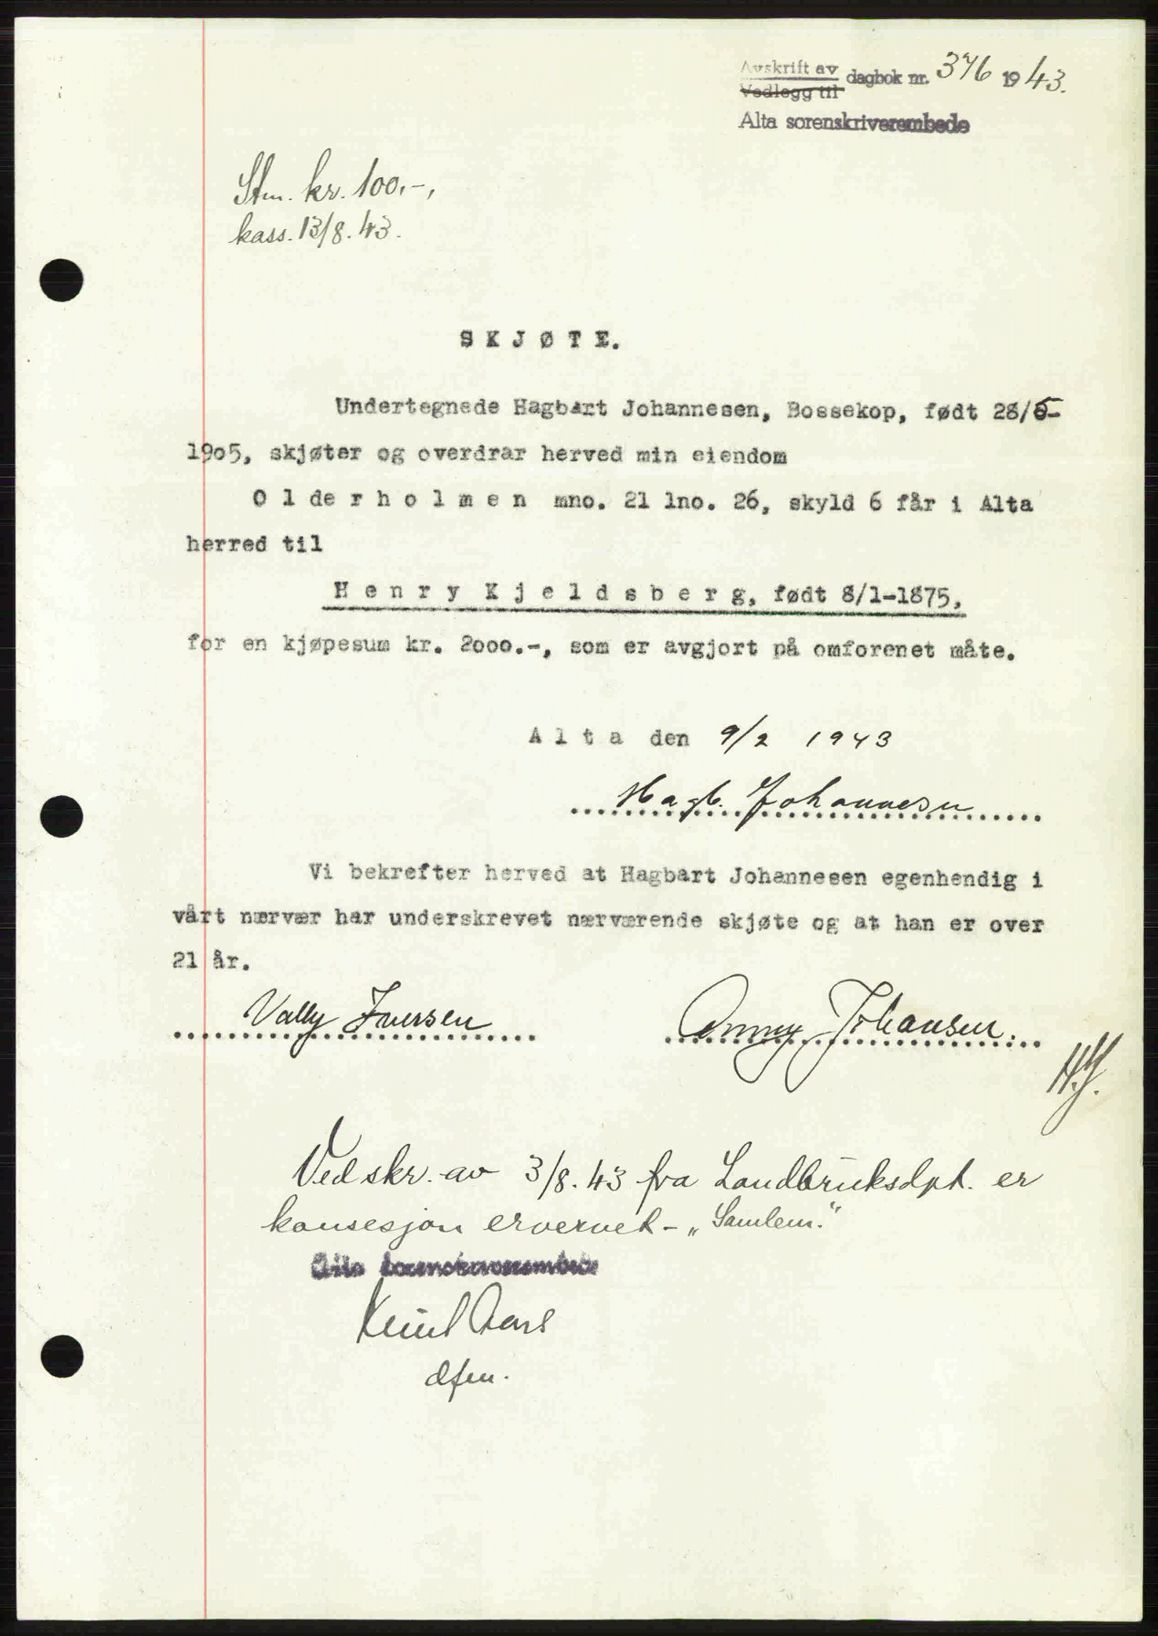 Avskrift av
Vedlegg til
dagbok nr. 376 1943.
Alta sorenskriverembede
Stm. kr. 100.-,
kass. 13/8. 43.
S K J Ø T E.
Undertegnede Hagbart Johannesen, Bossekop, født 28/5-
1905, skjøter og overdrar herved min eiendom
O l d e r h o l m e n mno. 21 lno. 26, skyld 6 får i Alta
herred til
H e n r y K j e l d s b e r g, født 8/1-1875,
for en kjøpesum kr. 2000.-, som er avgjort på omforenet måte.
A l t a den 9/2 1943
Hagb. Johannesen
Vi bekrefter herved at Hagbart Johannesen egenhendig i
vårt nærvær har underskrevet nærværende skjøte og at han er over
21 år.
Vally Iversen Anny Johansen.
H.J.
Ved skr. av 3/8. 43 fra Landbruksdpt. er
konsesjon ervervet - „Samlem."
Alta sorenskriverembede
Knut Aars
dfm.